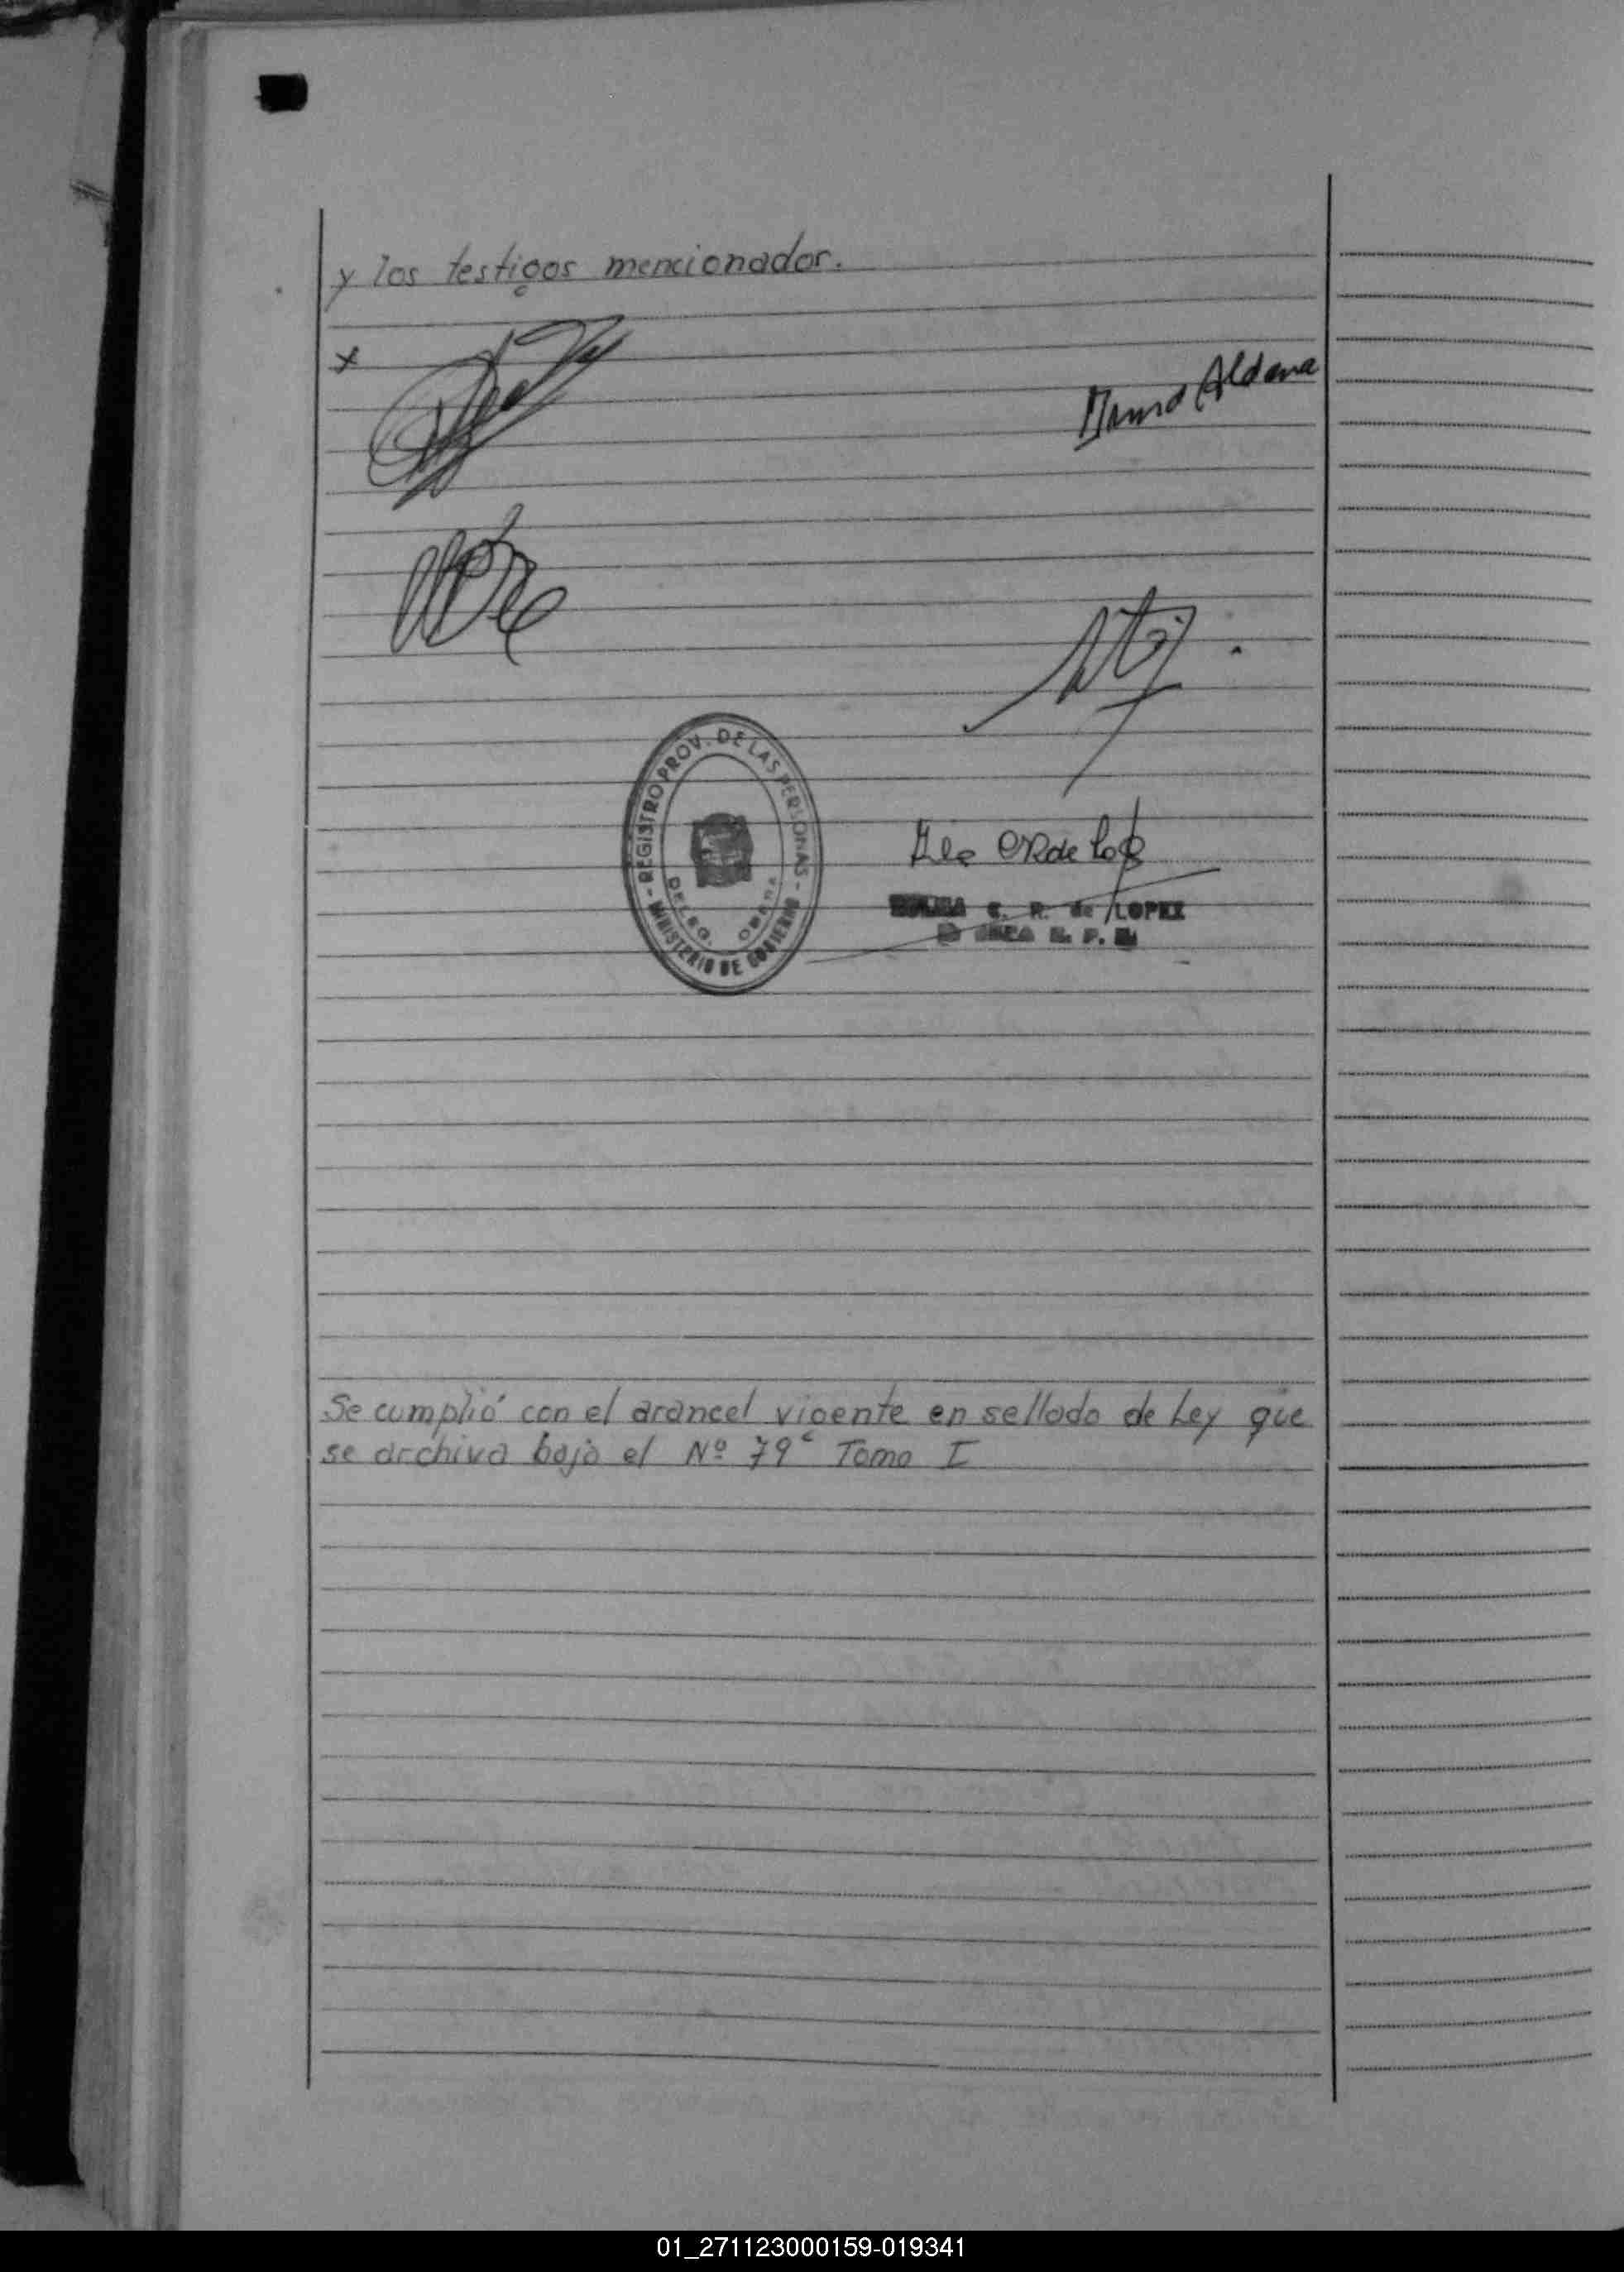 y los testigos mencionador.
x
Aldana
REGISTRO PROV. DE LAS PERSONAS
DELEG. OBERA
MINISTERIO DE GOBIERNO
de LOPEZ
Se cumplió con el arancel vigente en sellado de Ley que
se archiva bajo el Nº 79 Tomo I
01_271123000159-019341